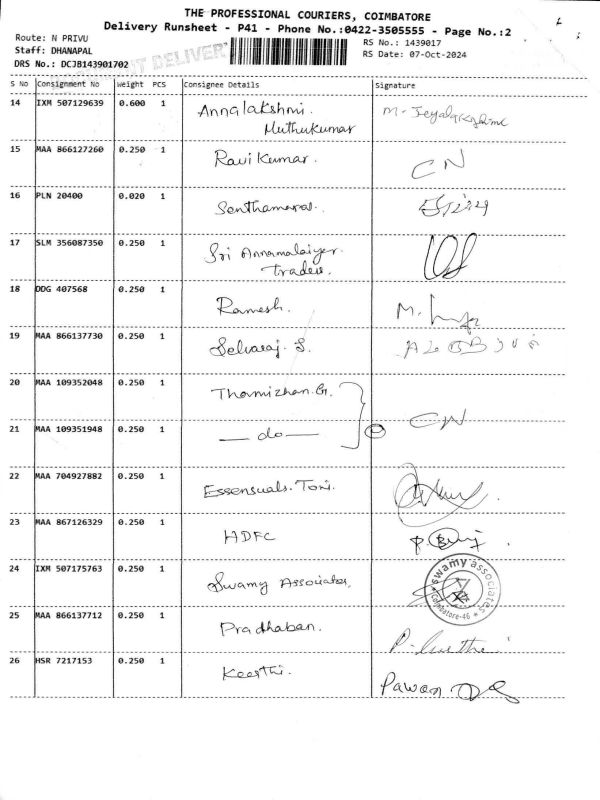 THE PROFESSIONAL COURIERS, COIMBATORE
Delivery Runsheet - P41 - Phone No.:0422-3505555 - Page No.:2
Route: N PRIVU
RS No.: 1439017
Staff: DHANAPAL
RS Date: 07-Oct-2024
DRS No.: DCJB143901702
DELIVERY
S No Consignment No Weight PCS Consignee Details Signature
14 IXM 507129639 0.600 1 Annalakshmi.
Muthukumar
15 MAA 866127260 0.250 1 Ravi Kumar. CN
16 PLN 20400 0.020 1
17 SLM 356087350 0.250 1 Sri Annamalaiyar
Traders
18 DDG 407568 0.250 1 Ramesh. M.
19 MAA 866137730 0.250 1 Selvaraj. S.
20 MAA 109352048 0.250 1 Thamizhan.G. CN
21 MAA 109351948 0.250 1 — do —
22 MAA 704927882 0.250 1 Essensuals. Toni.
23 MAA 867126329 0.250 1 HDFC
24 IXM 507175763 0.250 1 Swamy Associates, swamy associates Coimbatore-46
25 MAA 866137712 0.250 1 Pradhaban.
26 HSR 7217153 0.250 1 Keerthi. Pawan